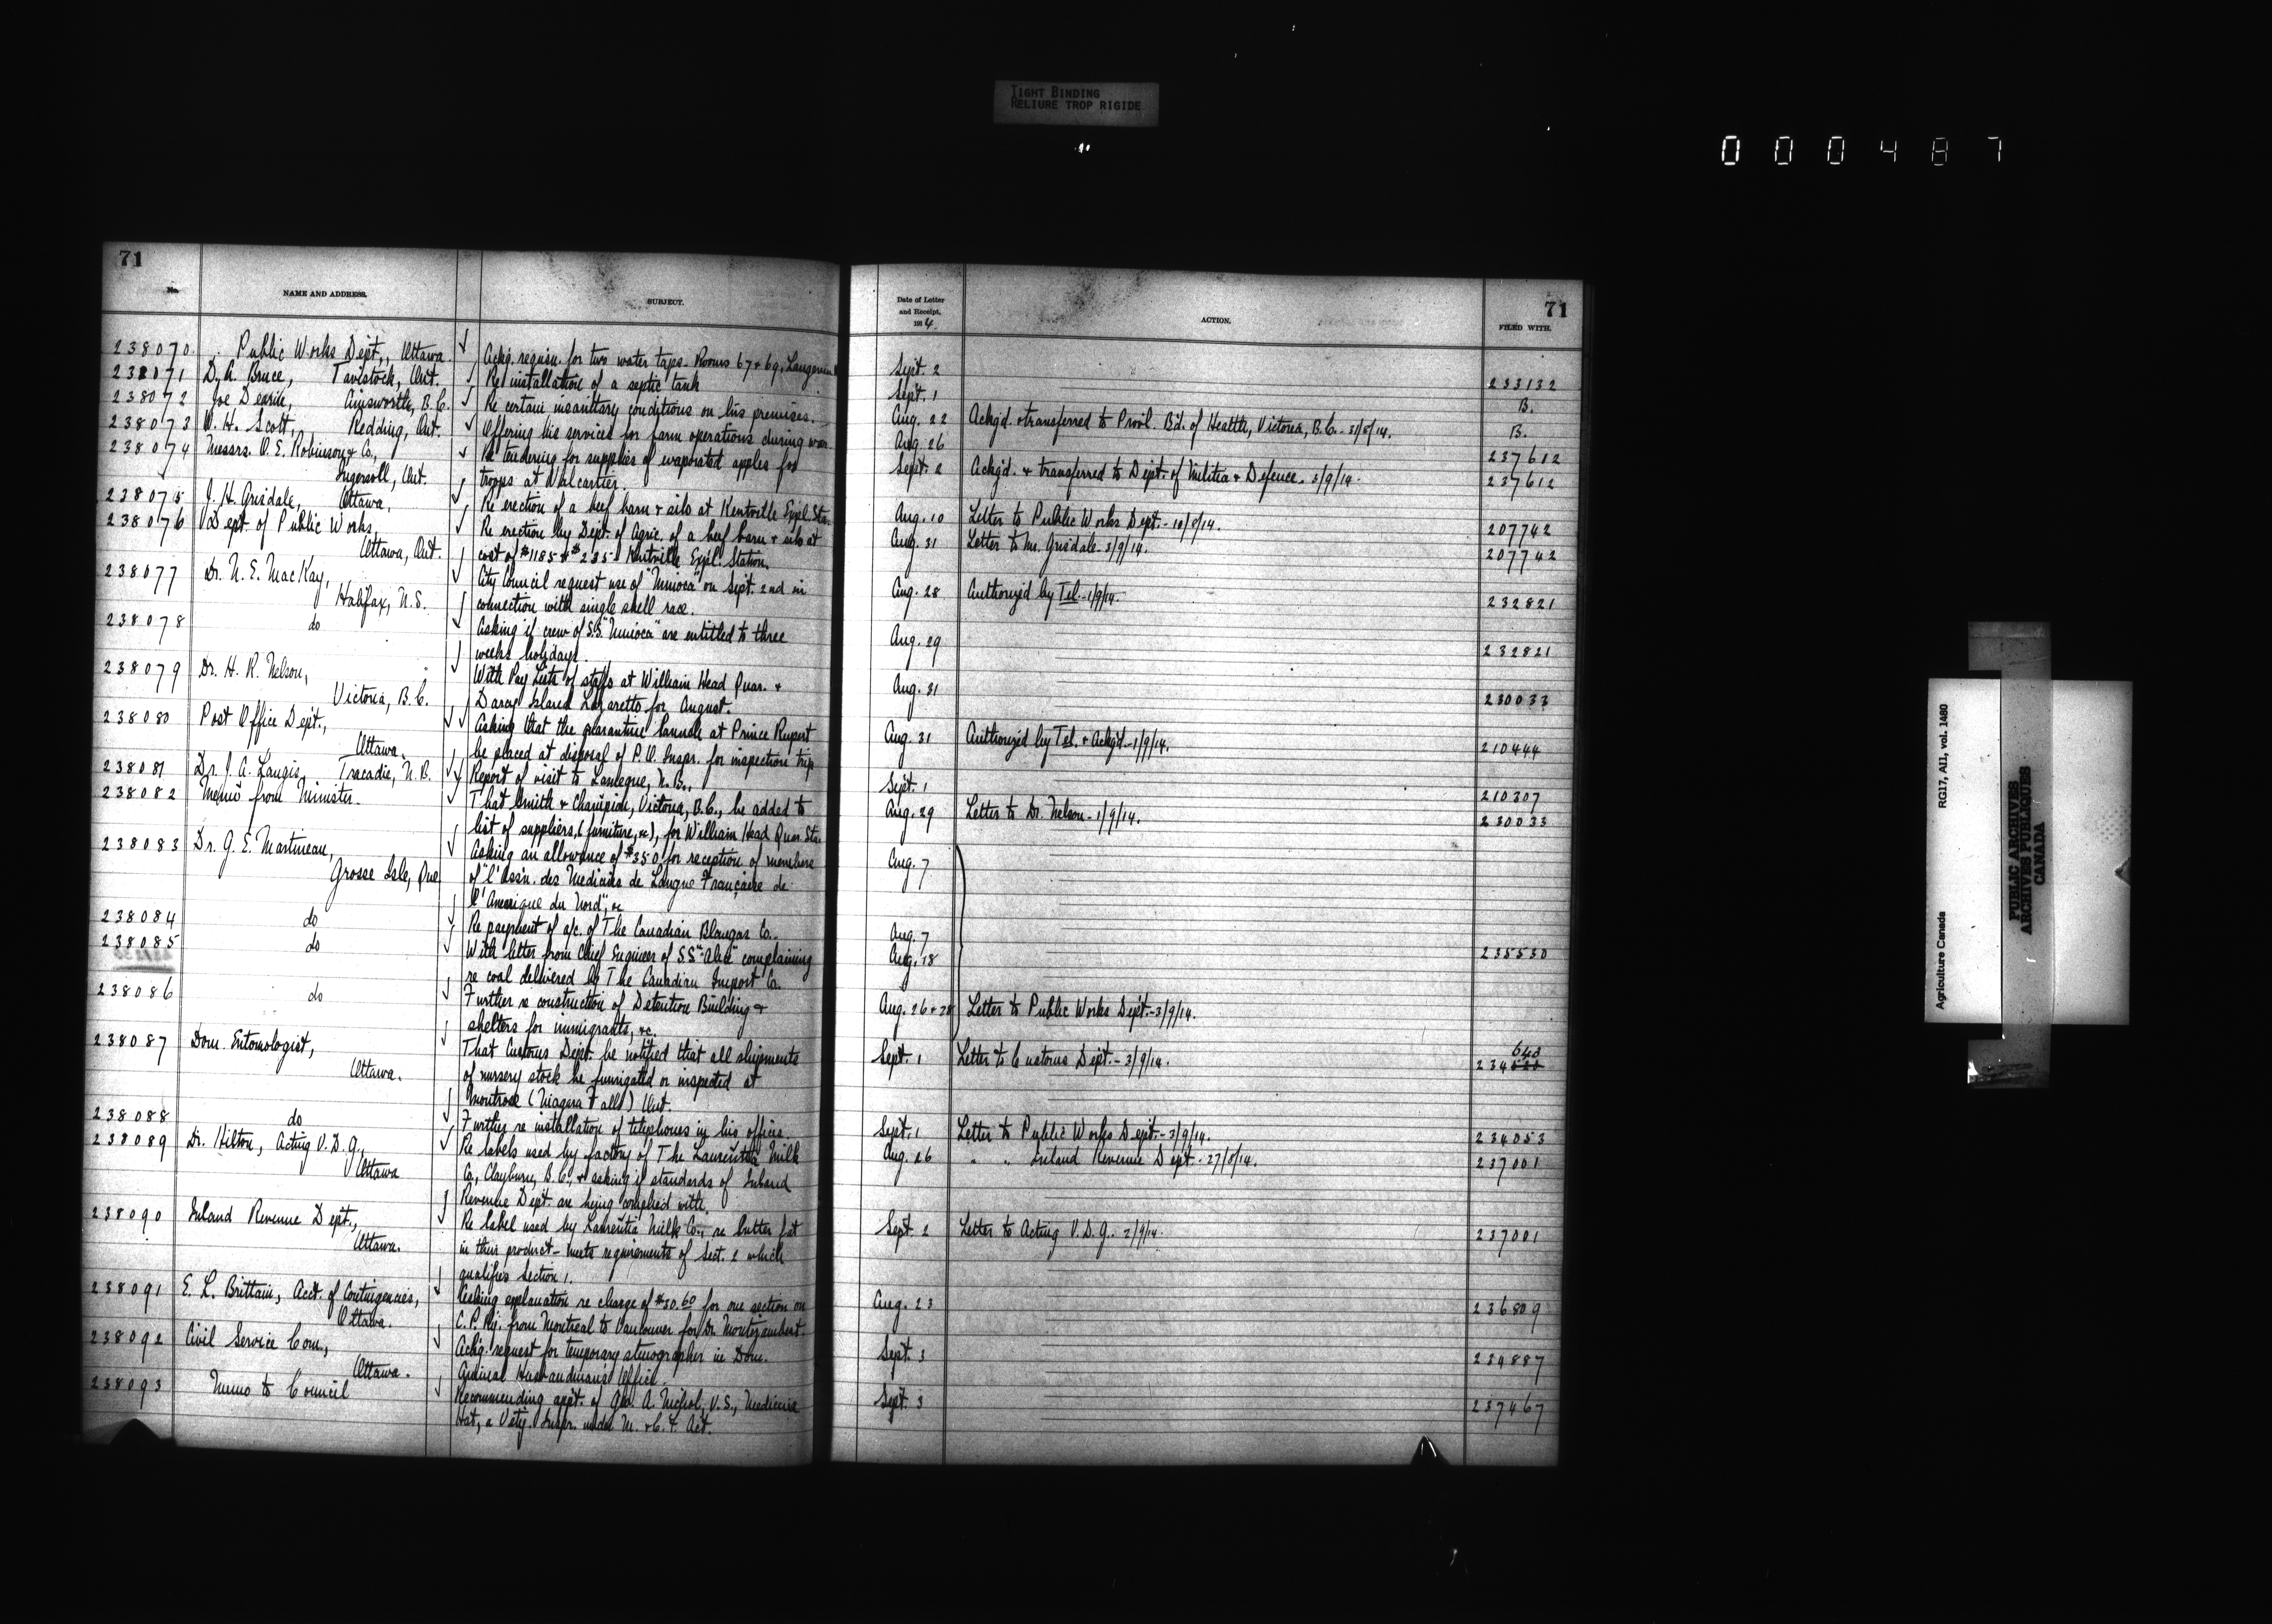 TIGHT BINDING
RELIURE TROP RIGIDE
000487
71
No. NAME AND ADDRESS. SUBJECT.
238070 Public Works Dept., Ottawa. Ackg. requisn. for two water taps. Rooms 67 & 69,
238071 D. A. Bruce, Tavistock, Ont. Re installation of a septic tank
238072 Joe Dearin, Ainsworth, B.C. Re certain insanitary conditions on his premises.
238073 W. H. Scott, Redding, Ont. Offering his services for farm operations during war.
238074 Messrs. O. E. Robinson & Co., Re tendering for supplies of evaporated apples for
Ingersoll, Ont. troops at Valcartier.
238075 J. H. Grisdale, Ottawa, Re erection of a beef barn & silo at Kentville Expl. Sta.
238076 Dept. of Public Works, Re erection by Dept. of Agric. of a beef barn & silo at
Ottawa, Ont. cost of $1185 & $235 Kentville Expl. Station.
238077 Dr. N. E. MacKay, City Council request use of "Minioca" on Sept. 2nd in
Halifax, N.S. connection with single shell race.
238078 do Asking if crew of S.S. "Minioca" are entitled to three
weeks holidays.
238079 Dr. H. R. Nelson, With Pay Lists of staffs at William Head Quar. &
Victoria, B.C. Darcy Island Lazaretto for August.
238080 Post Office Dept., Asking that the quarantine launch at Prince Rupert
Ottawa. be placed at disposal of P.O. Inspr. for inspection trip
238081 Dr. J. A. Langis, Tracadie, N.B. Report of visit to Lameque, N.B.,
238082 Memo from Minister. That Smith & Champion, Victoria, B.C., be added to
list of suppliers, (furniture, &c), for William Head Quar. Sta.
238083 Dr. G. E. Martineau, Asking an allowance of $350 for reception of members
Grosse Isle, Que of "l'Ass'n. des Medicins de Langue Française de
l'Amerique du Nord", &c
238084 do Re payment of a/c. of The Canadian Blaugas Co.
238085 do With letter from Chief Engineer of S.S. "Alice" complaining
re coal delivered by The Canadian Import Co.
238086 do Further re construction of Detention Building &
shelters for immigrants, &c.
238087 Dom. Entomologist, That Customs Dept. be notified that all shipments
Ottawa. of nursery stock be fumigated or inspected at
Montrose (Niagara Falls) Ont.
238088 do Further re installation of telephones in his offices.
238089 Dr. Hilton, Acting V.D.G., Re labels used by factory of The Laurentia Milk
Ottawa Co., Clayburn, B.C., & asking if standards of Inland
Revenue Dept. are being complied with.
238090 Inland Revenue Dept., Re label used by Laurentia Milk Co., re butter fat
Ottawa. in their product - meets requirements of Sect. 2 which
qualifies Section 1.
238091 E. L. Brittain, Acct. of Contingencies, Asking explanation re charge of $30.60 for one section on
Ottawa. C. P. Ry. from Montreal to Vancouver for Dr. Montizambert.
238092 Civil Service Com., Ackg. request for temporary stenographer in Dom.
Ottawa. Animal Husbandman's Office.
238093 Memo to Council Recommending appt. of Geo. A. Nichol, V.S., Medicine
Hat, a Vety. Inspr. under M. & C. F. Act.
71
Date of Letter and Receipt, 1914. ACTION. FILED WITH.
Sept. 2 233132
Sept. 1 B.
Aug. 22 Ackg'd. & transferred to Provl. Bd. of Health, Victoria, B.C. - 31/8/14. B.
Aug. 26 237612
Sept. 2 Ackg'd. & transferred to Dept. of Militia & Defence. 3/9/14. 237612
Aug. 10 Letter to Public Works Dept. - 10/8/14. 207742
Aug. 31 Letter to Mr. Grisdale - 3/9/14. 207742
Aug. 28 Authorized by Tel. - 1/9/14. 232821
Aug. 29 232821
Aug. 31 230033
Aug. 31 Authorized by Tel. & Ackg'd. - 1/9/14. 210444
Sept. 1 210307
Aug. 29 Letter to Dr. Nelson - 1/9/14. 230033
Aug. 7
Aug. 7
Aug. 18 235530
Aug. 26 & 28 Letter to Public Works Dept. - 3/9/14.
Sept. 1 Letter to Customs Dept. - 3/9/14. 234
Sept. 1 Letter to Public Works Dept. - 3/9/14. 234053
Aug. 26 " " Inland Revenue Dept. - 27/8/14. 237001
Sept. 2 Letter to Acting V.D.G. 2/9/14. 237001
Aug. 23 236809
Sept. 3 234887
Sept. 3 237467
Agriculture Canada RG17, AI1, vol. 1480
PUBLIC ARCHIVES
ARCHIVES PUBLIQUES
CANADA